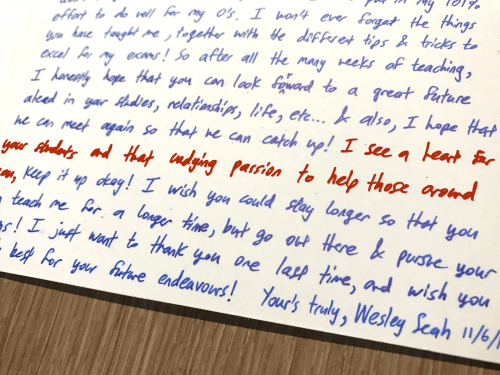 put in my 101%
effort to do well for my O's. I won't ever forget the things
you have taught me, together with the different tips & tricks to
excel for my exams! So after all the many weeks of teaching,
I honestly hope that you can look forward to a great future
ahead in your studies, relationships, life, etc... & also, I hope that
we can meet again so that we can catch up! I see a heart for
your students and that undying passion to help those around
you, keep it up okay! I wish you could stay longer so that you
teach me for a longer time, but go out there & pursue your
! I just want to thank you one last time, and wish you
best for your future endeavours! Your's truly, Wesley Seah 11/6/